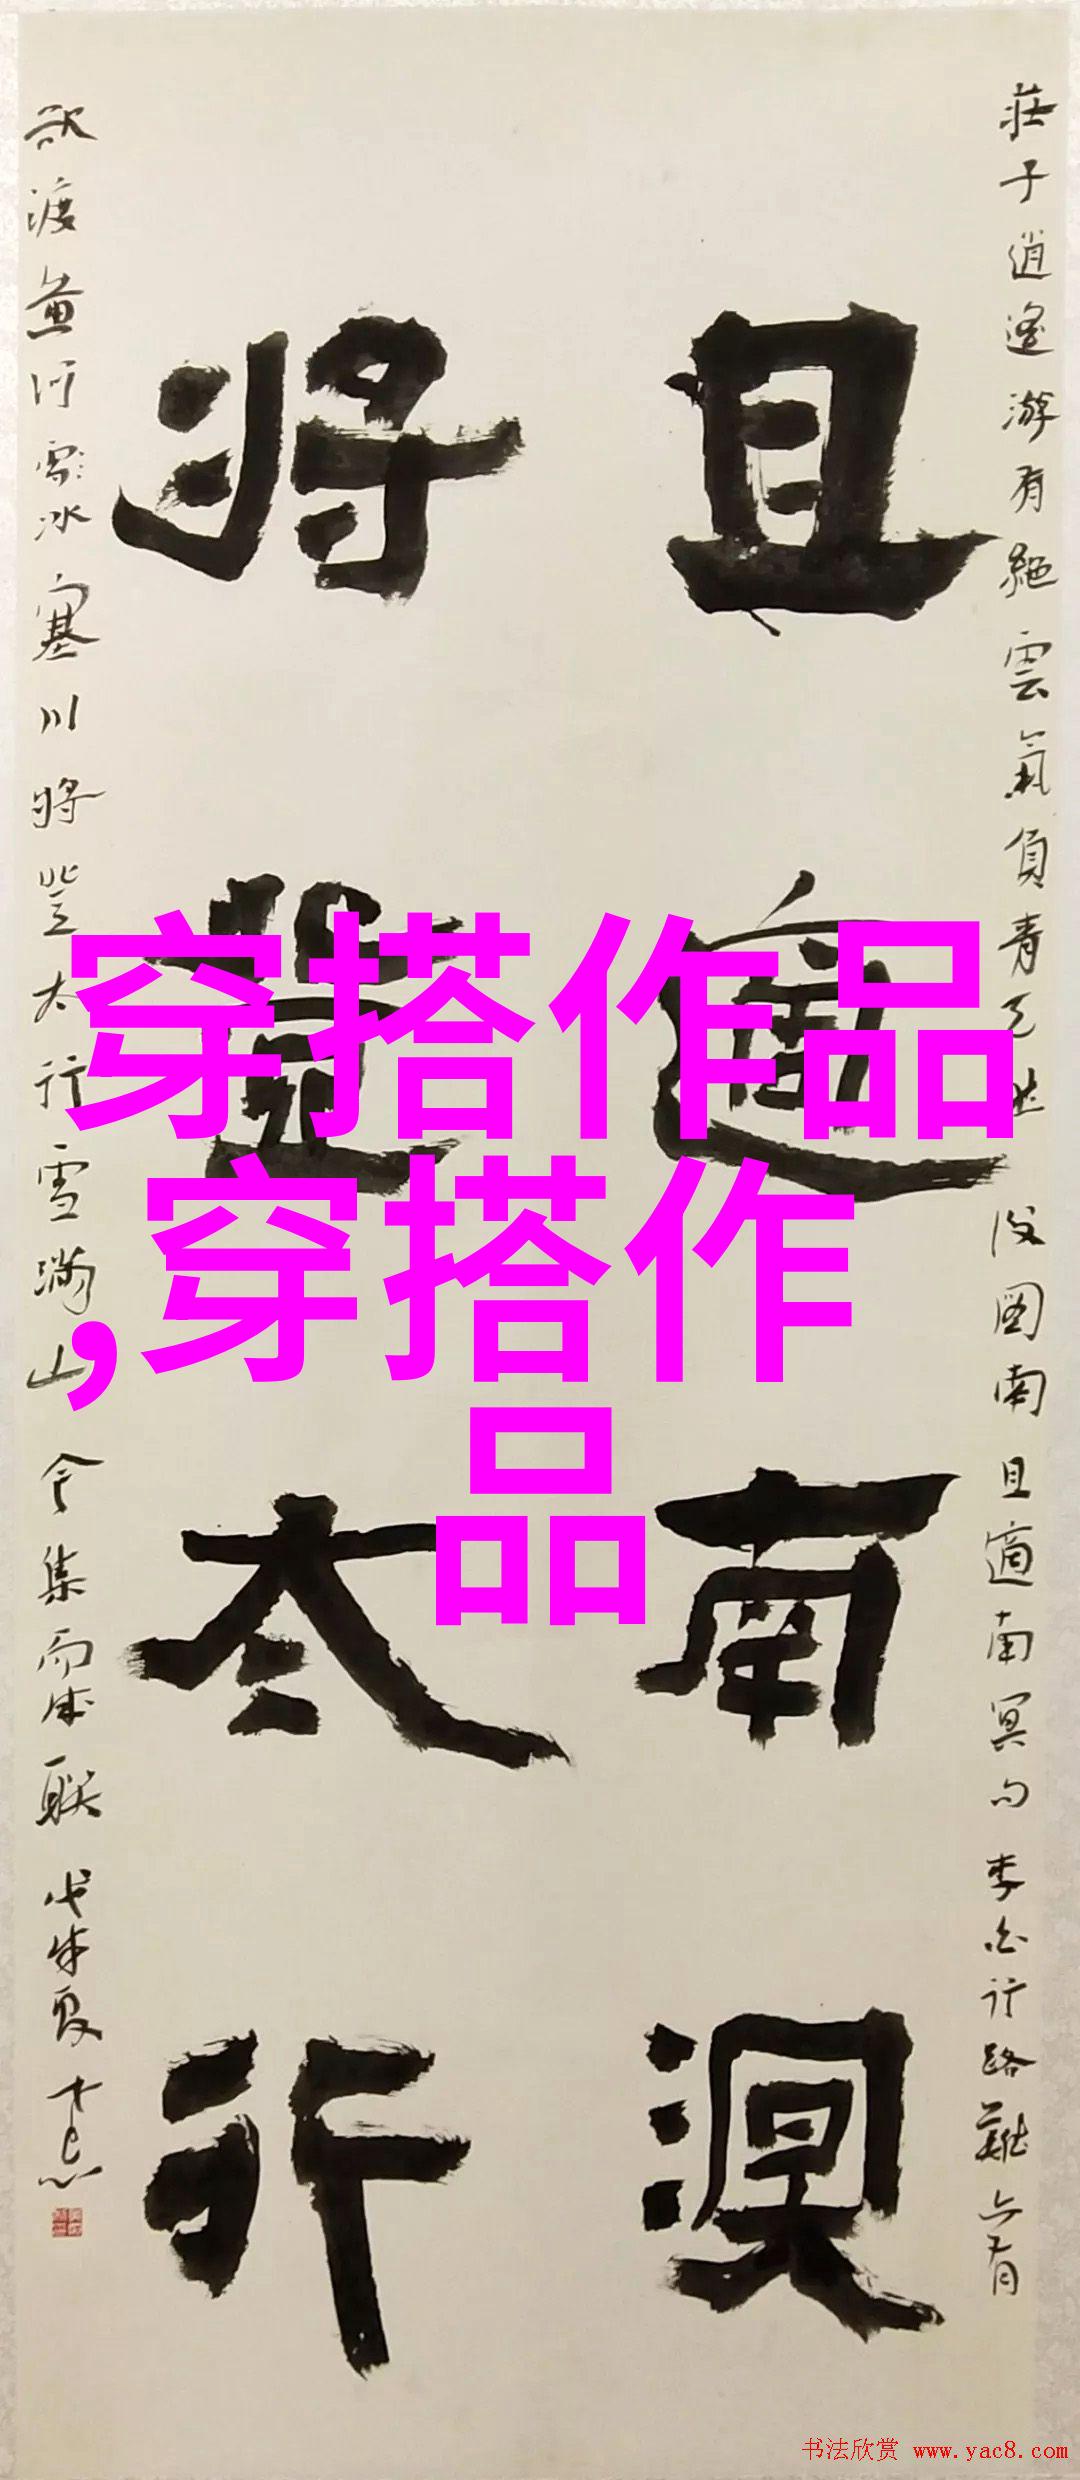 莊子逍遙游有絕雲氣負青天然後圖南且適南冥句李白行路難亦有
且適南溟
將登太行
欲渡黃河冰塞川將登太行雪滿山會集而成聯戊戌夏
穿搭作品
,穿搭作
品
书法欣赏 www.yac8.com